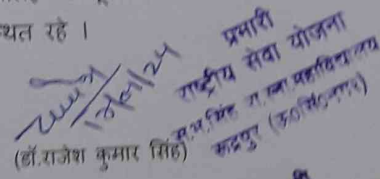 थत रहे ।
17/01/24
(डॉ.राजेश कुमार सिंह)
प्रभारी
राष्ट्रीय सेवा योजना
महाविद्यालय
रूद्रपुर (ऊ०सिं०नगर)